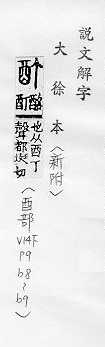 說文解字
大徐本〈新附〉
酊
酩酊
也从酉丁
聲都挺切
〈酉部V14下P9b8~b9〉